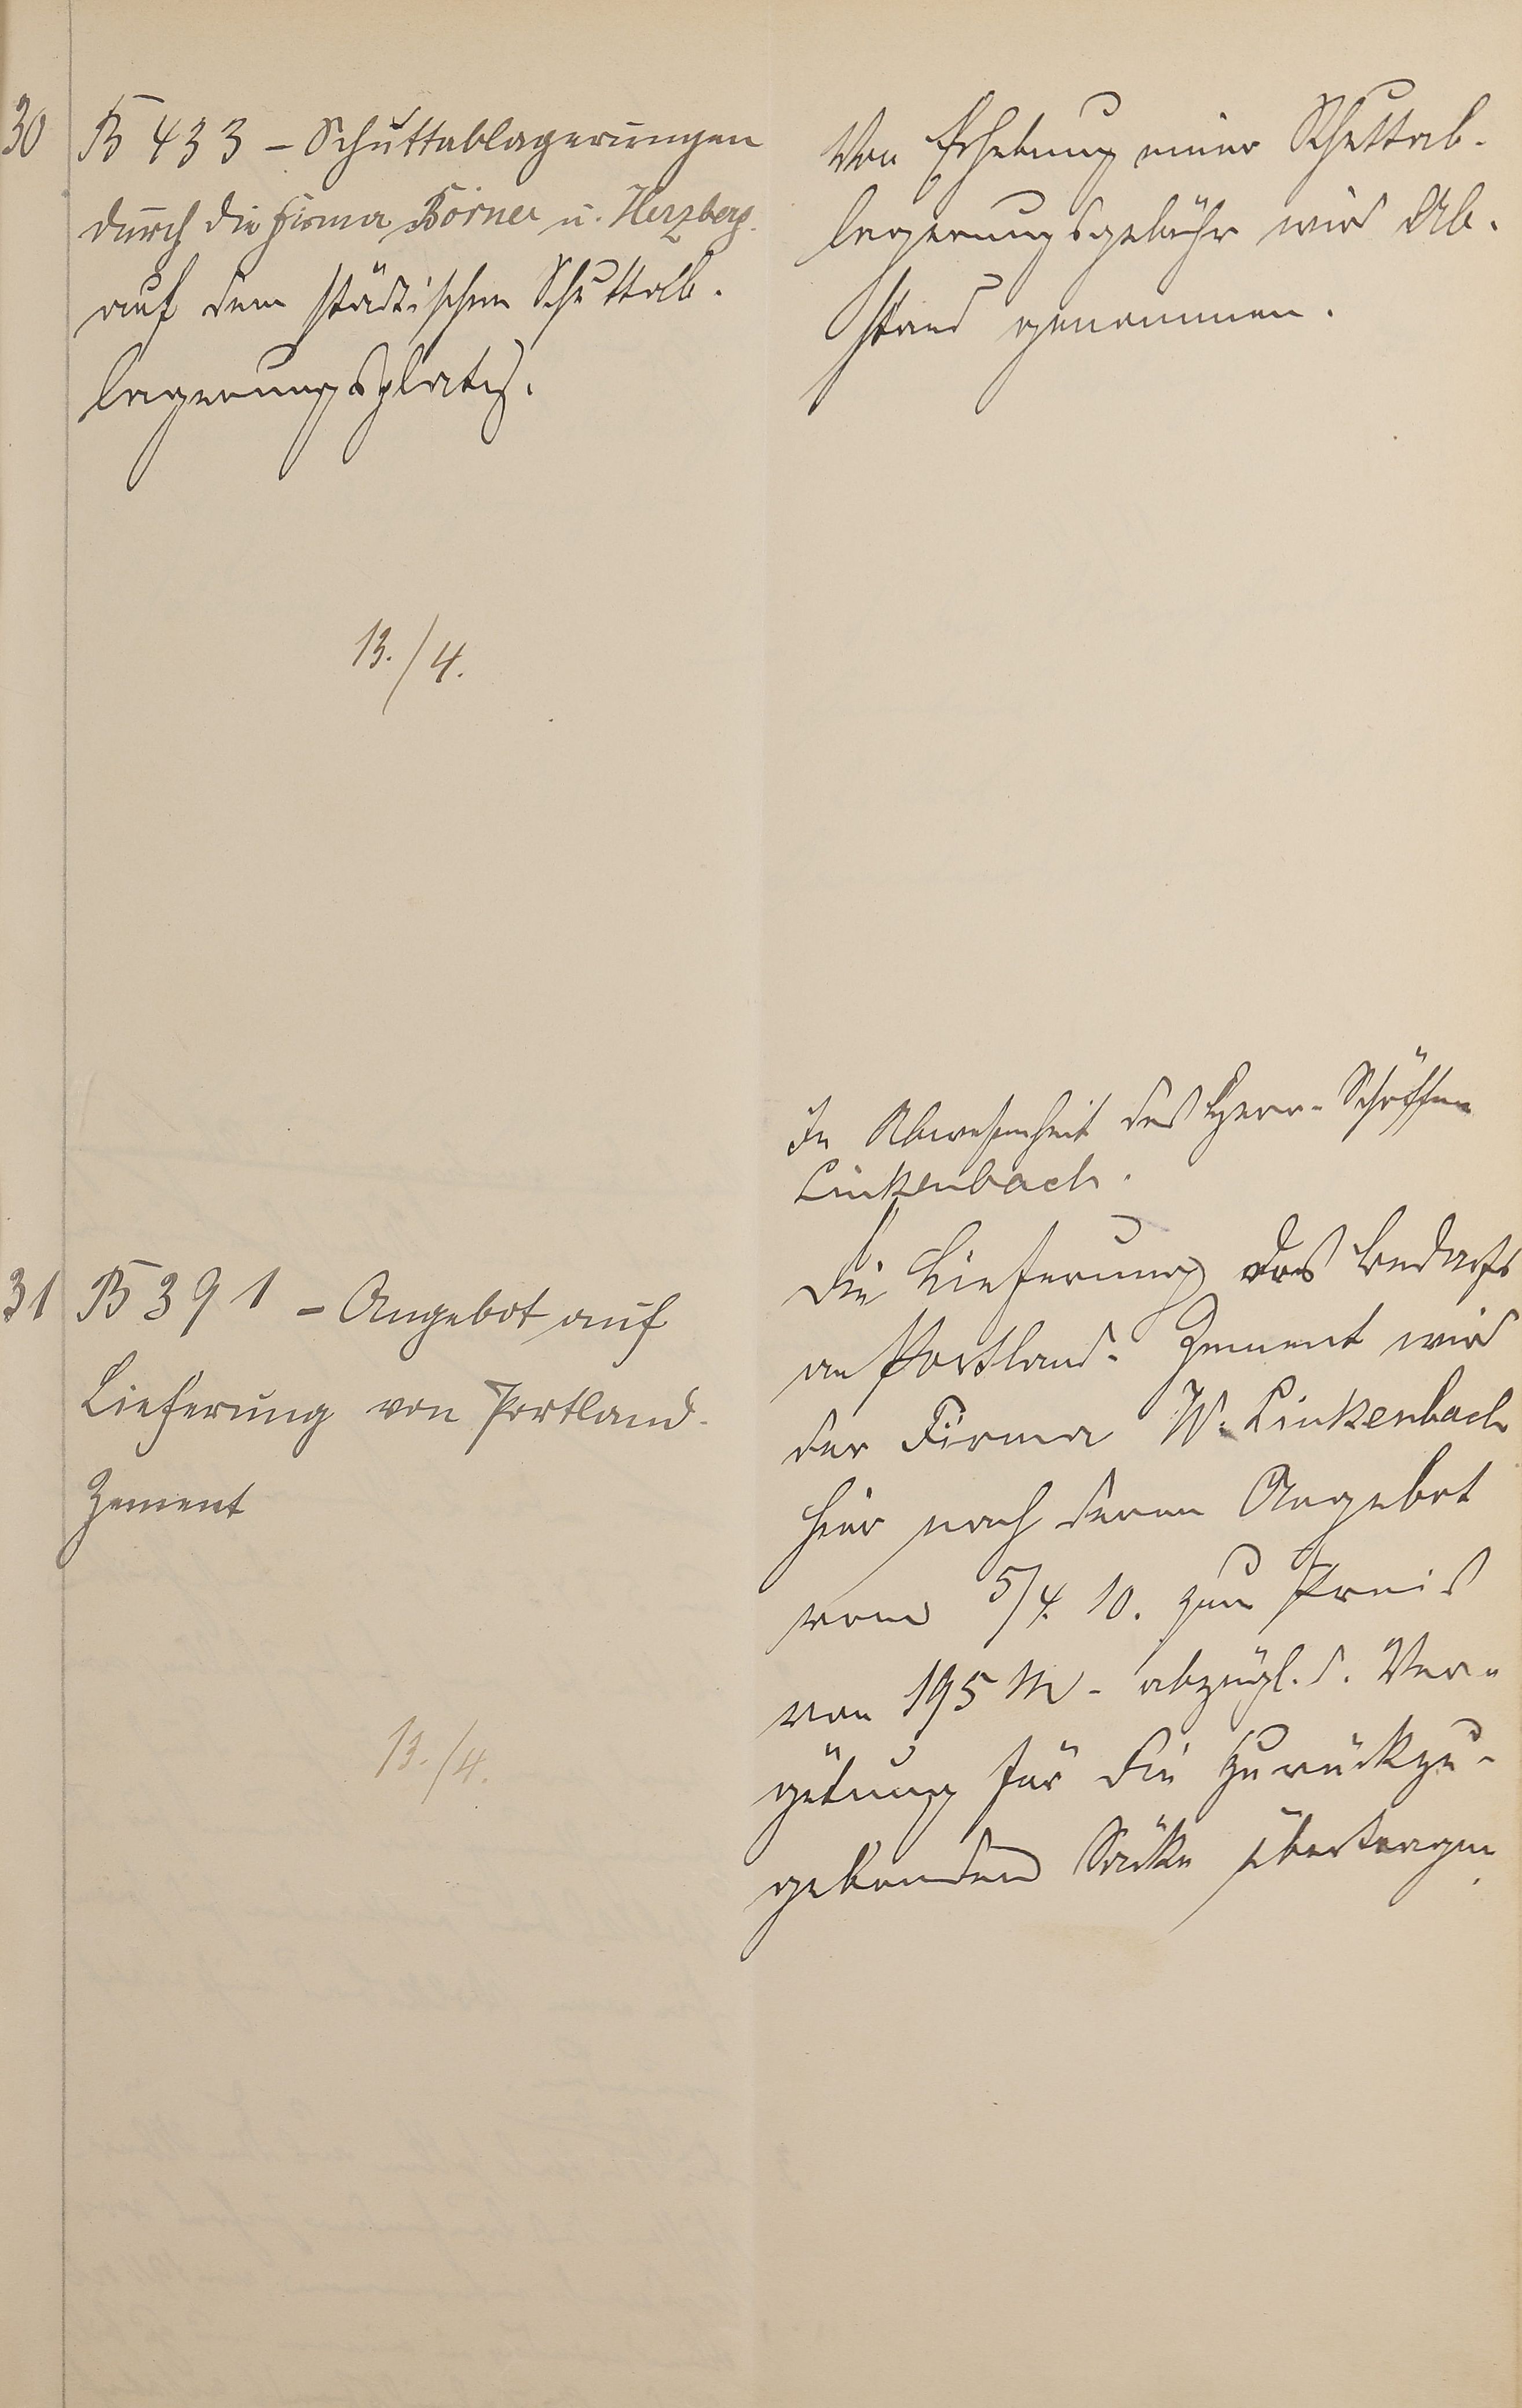 30
B 433 - Schuttablagerungen
durch die Firma Börner u. Herzberg
auf dem städtischen Schuttab-
lagerungsplatz.
13./4.
Von Erhebung einer Schuttab-
lagerungsgebühr wird Ab-
stand genommen.
31
B 391 - Angebot auf
Lieferung von Portland-
Zement
13./4.
In Abwesenheit des Herrn Schöffen
Linkenbach.
Die Lieferung des Bedarfs
an Portland-Zement wird
der Firma W. Linkenbach
hier nach deren Angebot
vom 5/4. 10. zum Preis
von 195 M - abzügl. d. Ver-
gütung für die zurückzu-
gebenden Säcke übertragen.